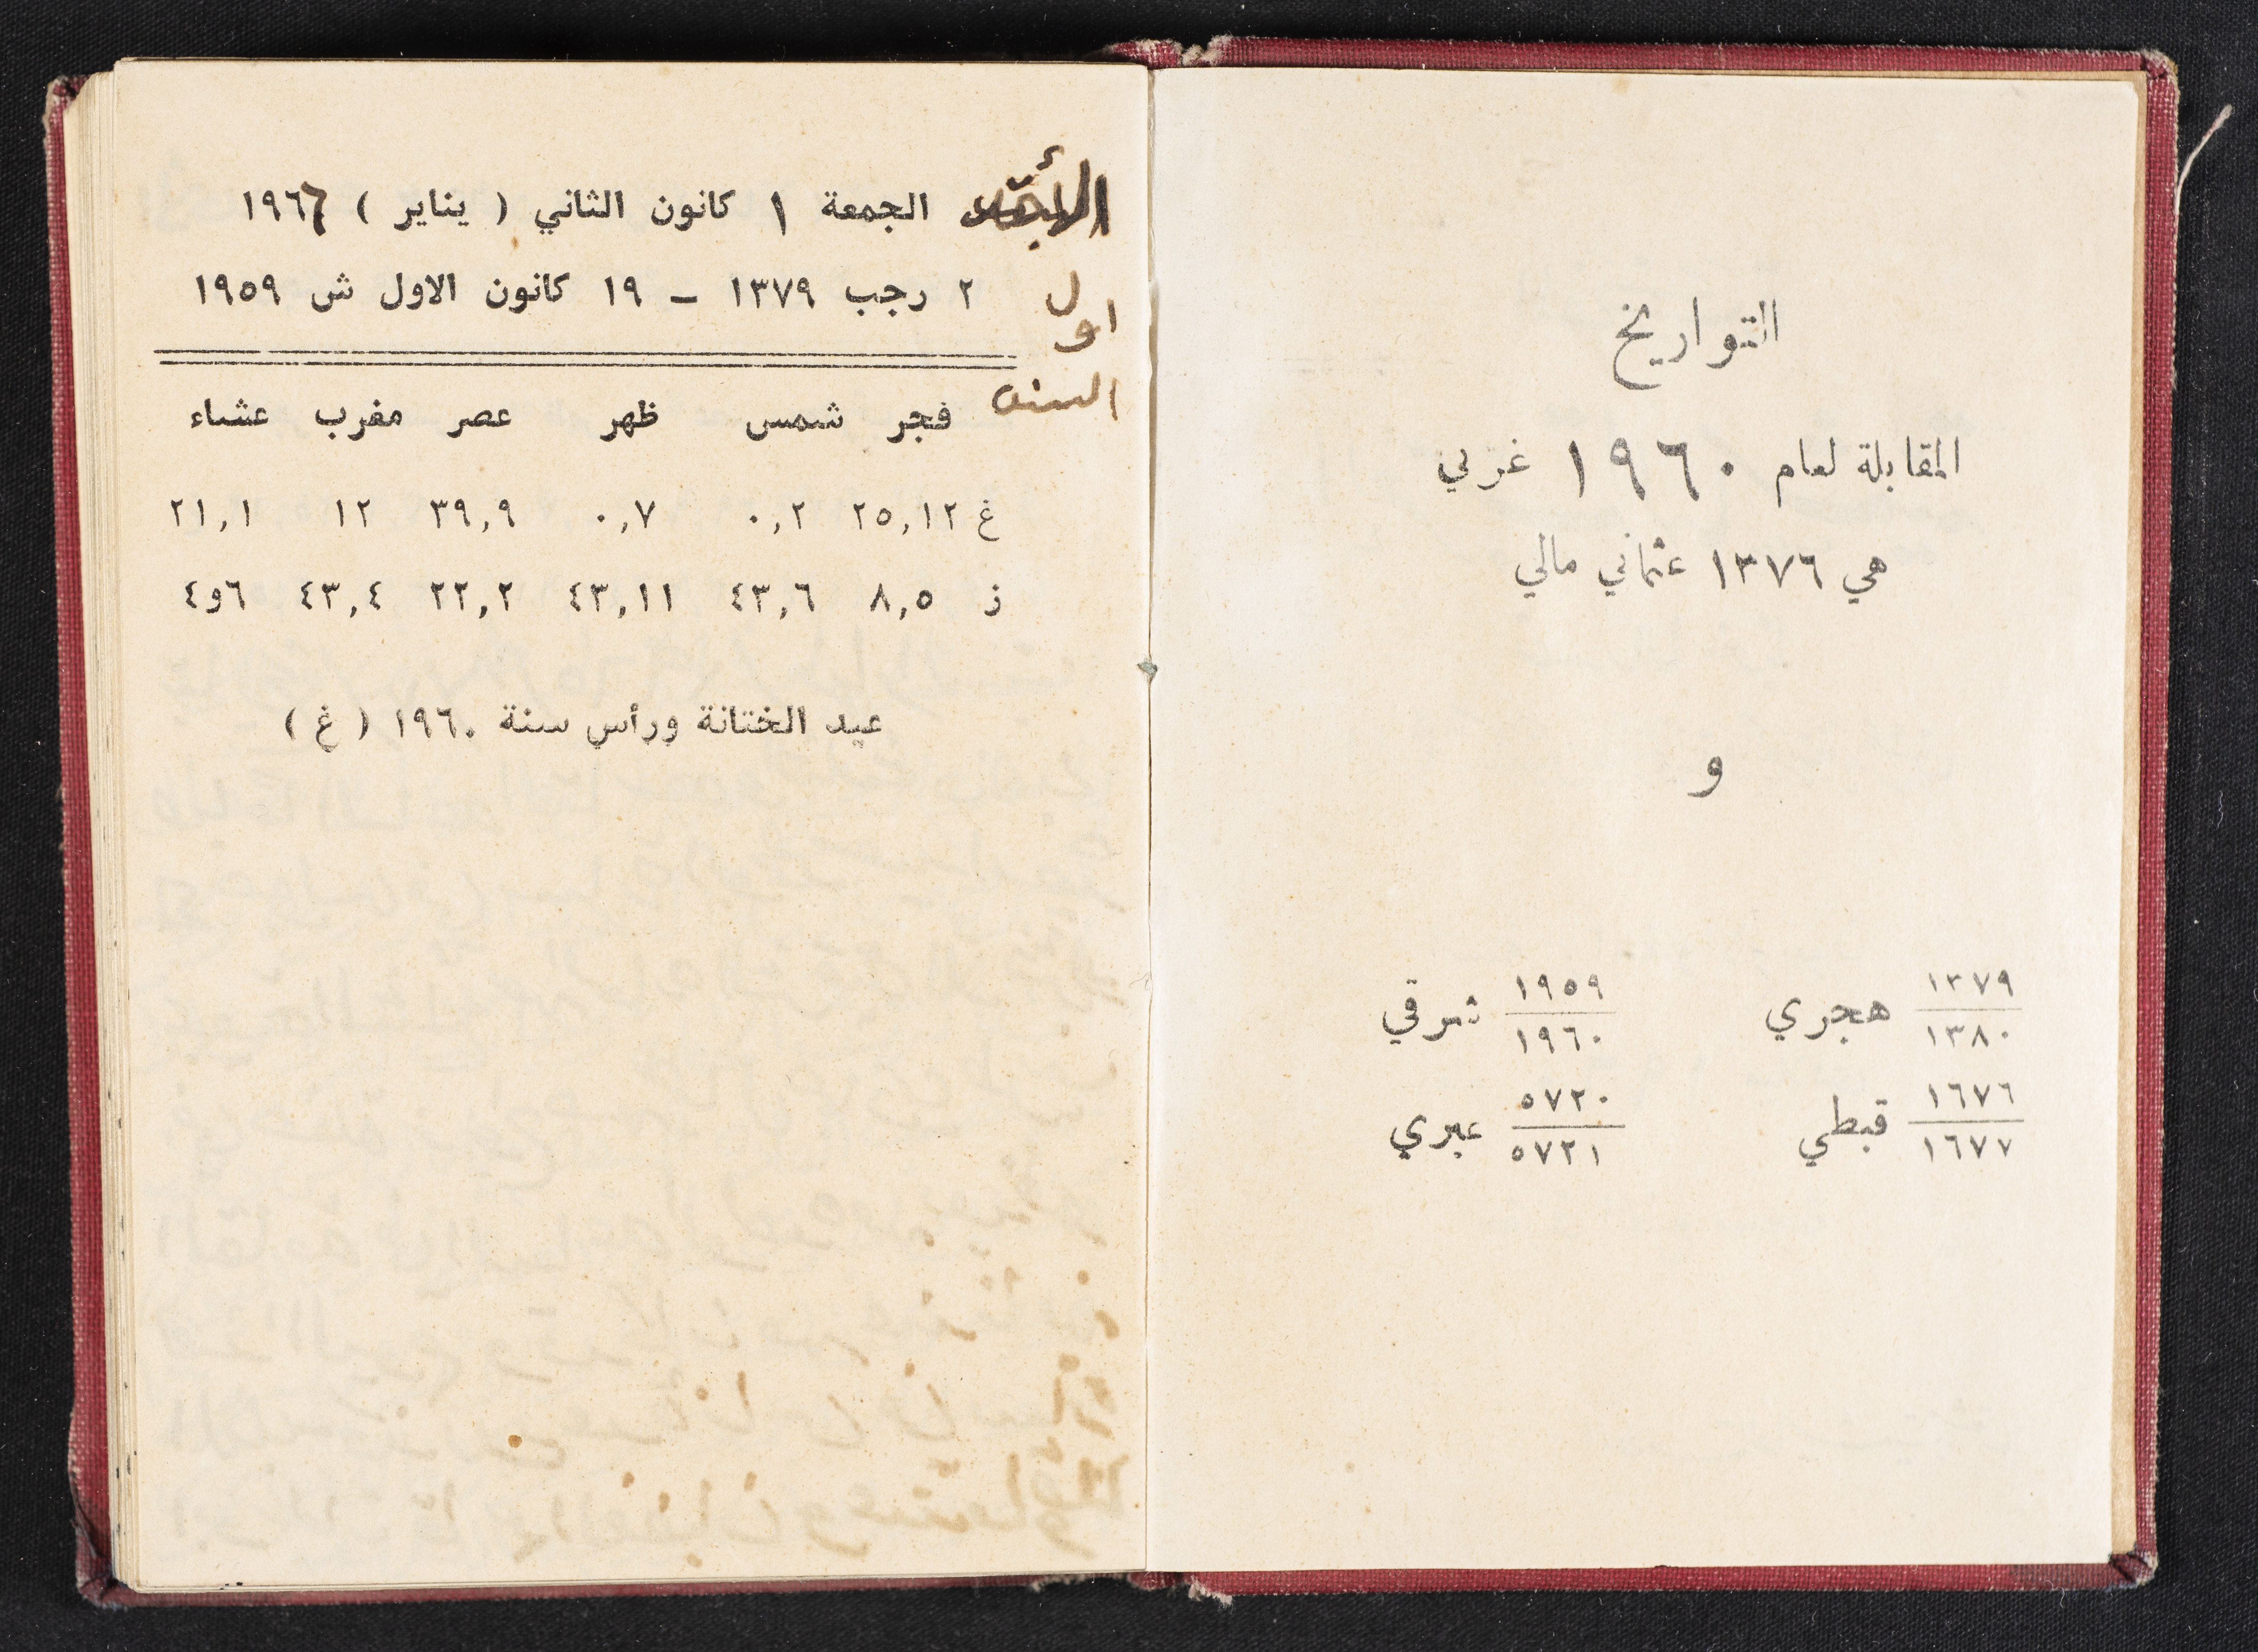 التواريخ
المقابلة لعام ١٩٦٠ غربي
هي ١٣٧٦ عثماني مالي
و
١٣٧٩
١٣٨٠
هجري
١٩٥٩
١٩٦٠
شرقي
١٦٧٦
١٦٧٧
قبطي
٥٧٢٠
٥٧٢١
عبري
الجمعة ١ كانون الثاني ( يناير ) ١٩٦٦
٢ رجب ١٣٧٩ – ١٩ كانون الاول ش ١٩٥٩
اول
السنه
فجر شمس ظهر عصر مغرب عشاء
غ ٢٥,١٢ ٠,٢ ٠,٧ ٣٩,٩ ١٢ ٢١,١
ز ٨,٥ ٤٣,٦ ٤٣,١١ ٢٢,٢ ٤٣,٤ ٦و٤
عيد الختانة ورأس سنة ١٩٦٠ ( غ )